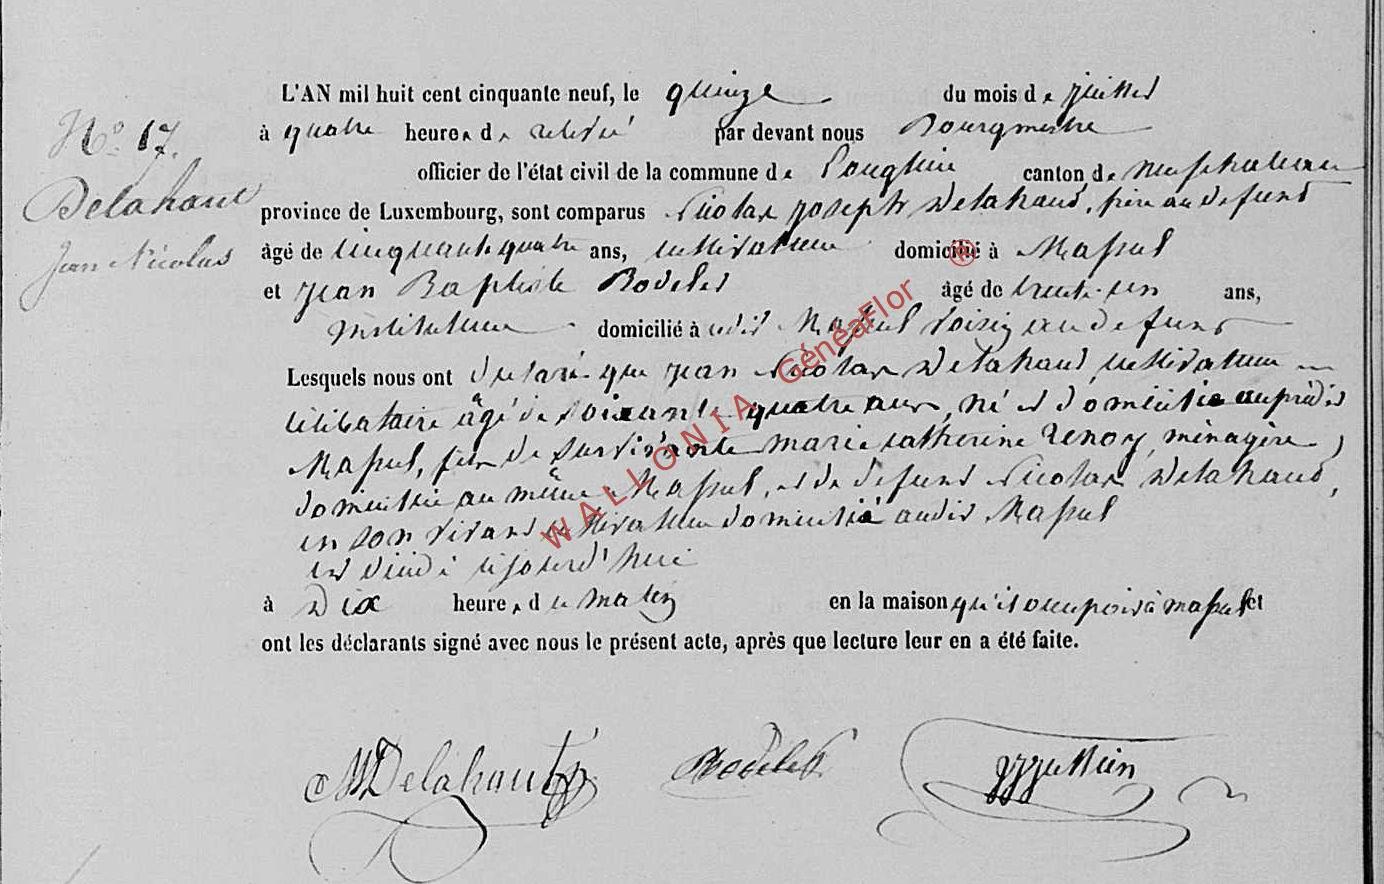 L'AN mil huit cent cinquante neuf, le quinze du mois de juillet
N° 17. à quatre heures de relevé par devant nous Bourgmestre
officier de l'état civil de la commune de Longlier canton de Neufchateau
Delahaut province de Luxembourg, sont comparus Nicolas Joseph Delahaut, frère au defunt
Jean Nicolas âgé de cinquante quatre ans, cultivateur domicilié à Massul
et Jean Baptiste Bodelet âgé de trente-un ans,
instituteur domicilié à udit Massul voisin au defunt
Lesquels nous ont declaré que Jean Nicolas Delahaut, cultivateur
celibataire âgé de soixante quatre ans, né et domicilié au prédit
Massul, fils de survivante marie catherine Zenoy, ménagère,
domiciliée au même Massul, et de defunt Nicolas Delahaut,
en son vivant cultivateur domicilié audit Massul
est décédé cejourd'hui
à Dix heures du matin en la maison qu'il occupoit à massul et
ont les déclarants signé avec nous le présent acte, après que lecture leur en a été faite.
NJ Delahaut Bodelet
WALLONIA GénéaFlor ®